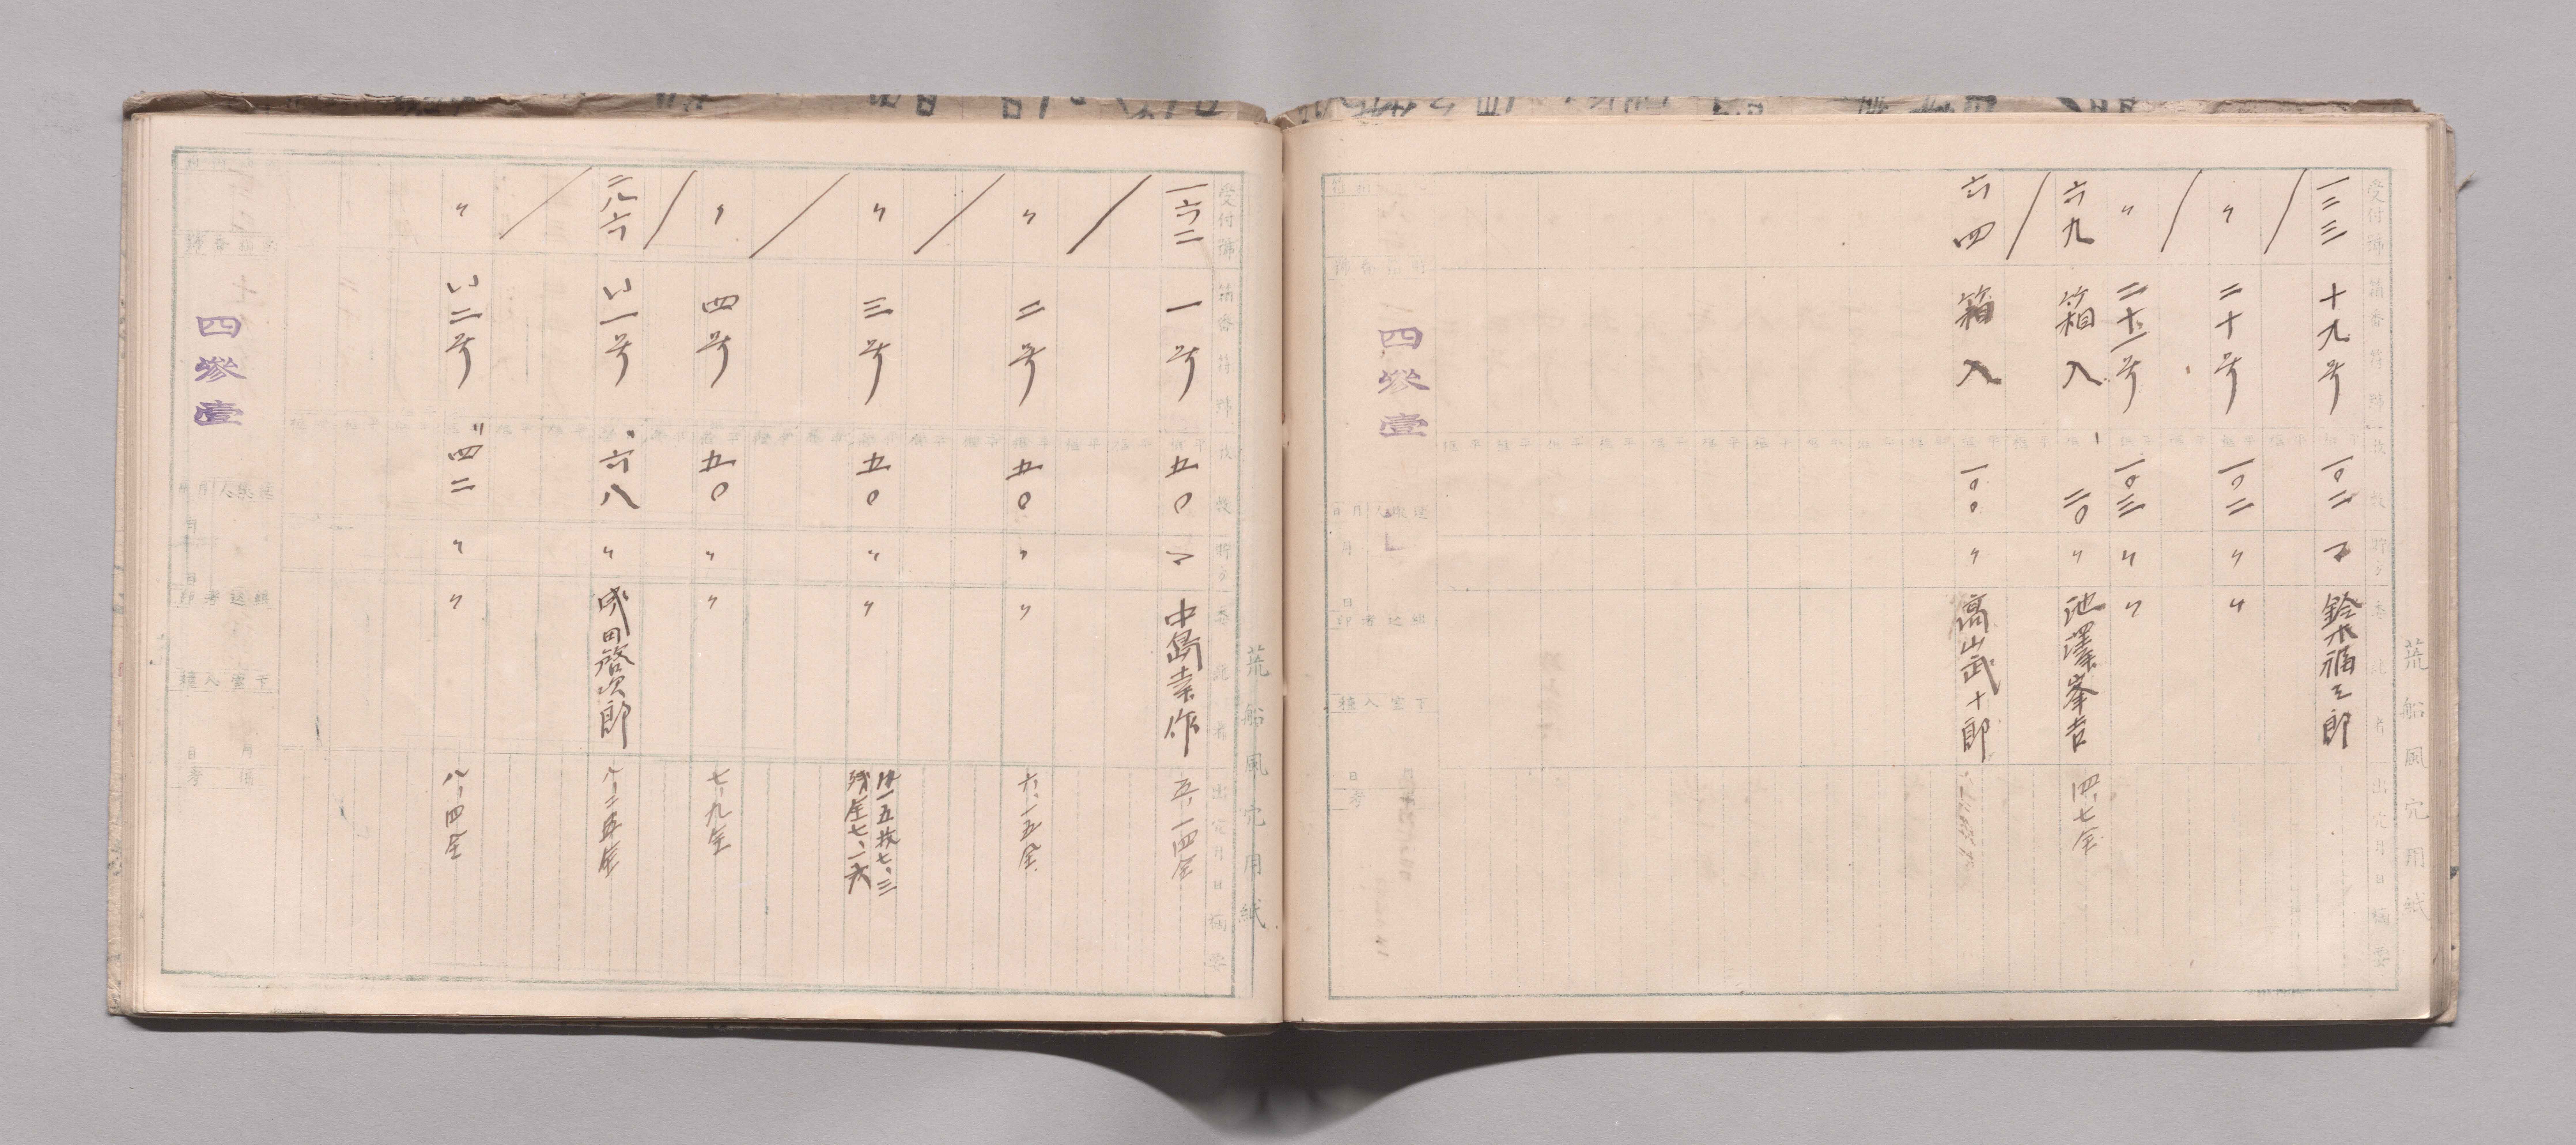 荒船風穴用紙
受付號 箱番符號 枚数 貯タ 委託者 出穴月日 摘要
一二三 十九号 一〇二 マ 鈴木福三郎
〃 二十号 一〇二 〃 〃
〃 二十一号 一〇三 〃 〃
六九 箱入 二〇 〃 池澤峯吉 四、七全
六四 箱入 一〇〇 〃 高山武十郎
四參壹
荒船風穴用紙
受付號 箱番符號 枚数 貯タ 委託者 出穴月日 摘要
一六二 一号 五〇 マ 中島幸作 五、一四全
〃 二号 五〇 〃 〃 六、一五全
〃 三号 五〇 〃 〃 廿一五枚七、三
残全七、一六
〃 四号 五〇 〃 〃 七、九全
二九六 い一号 六八 〃 成田啓次郎 八、二五全
〃 い二号 四二 〃 〃 八、四全
四參壹